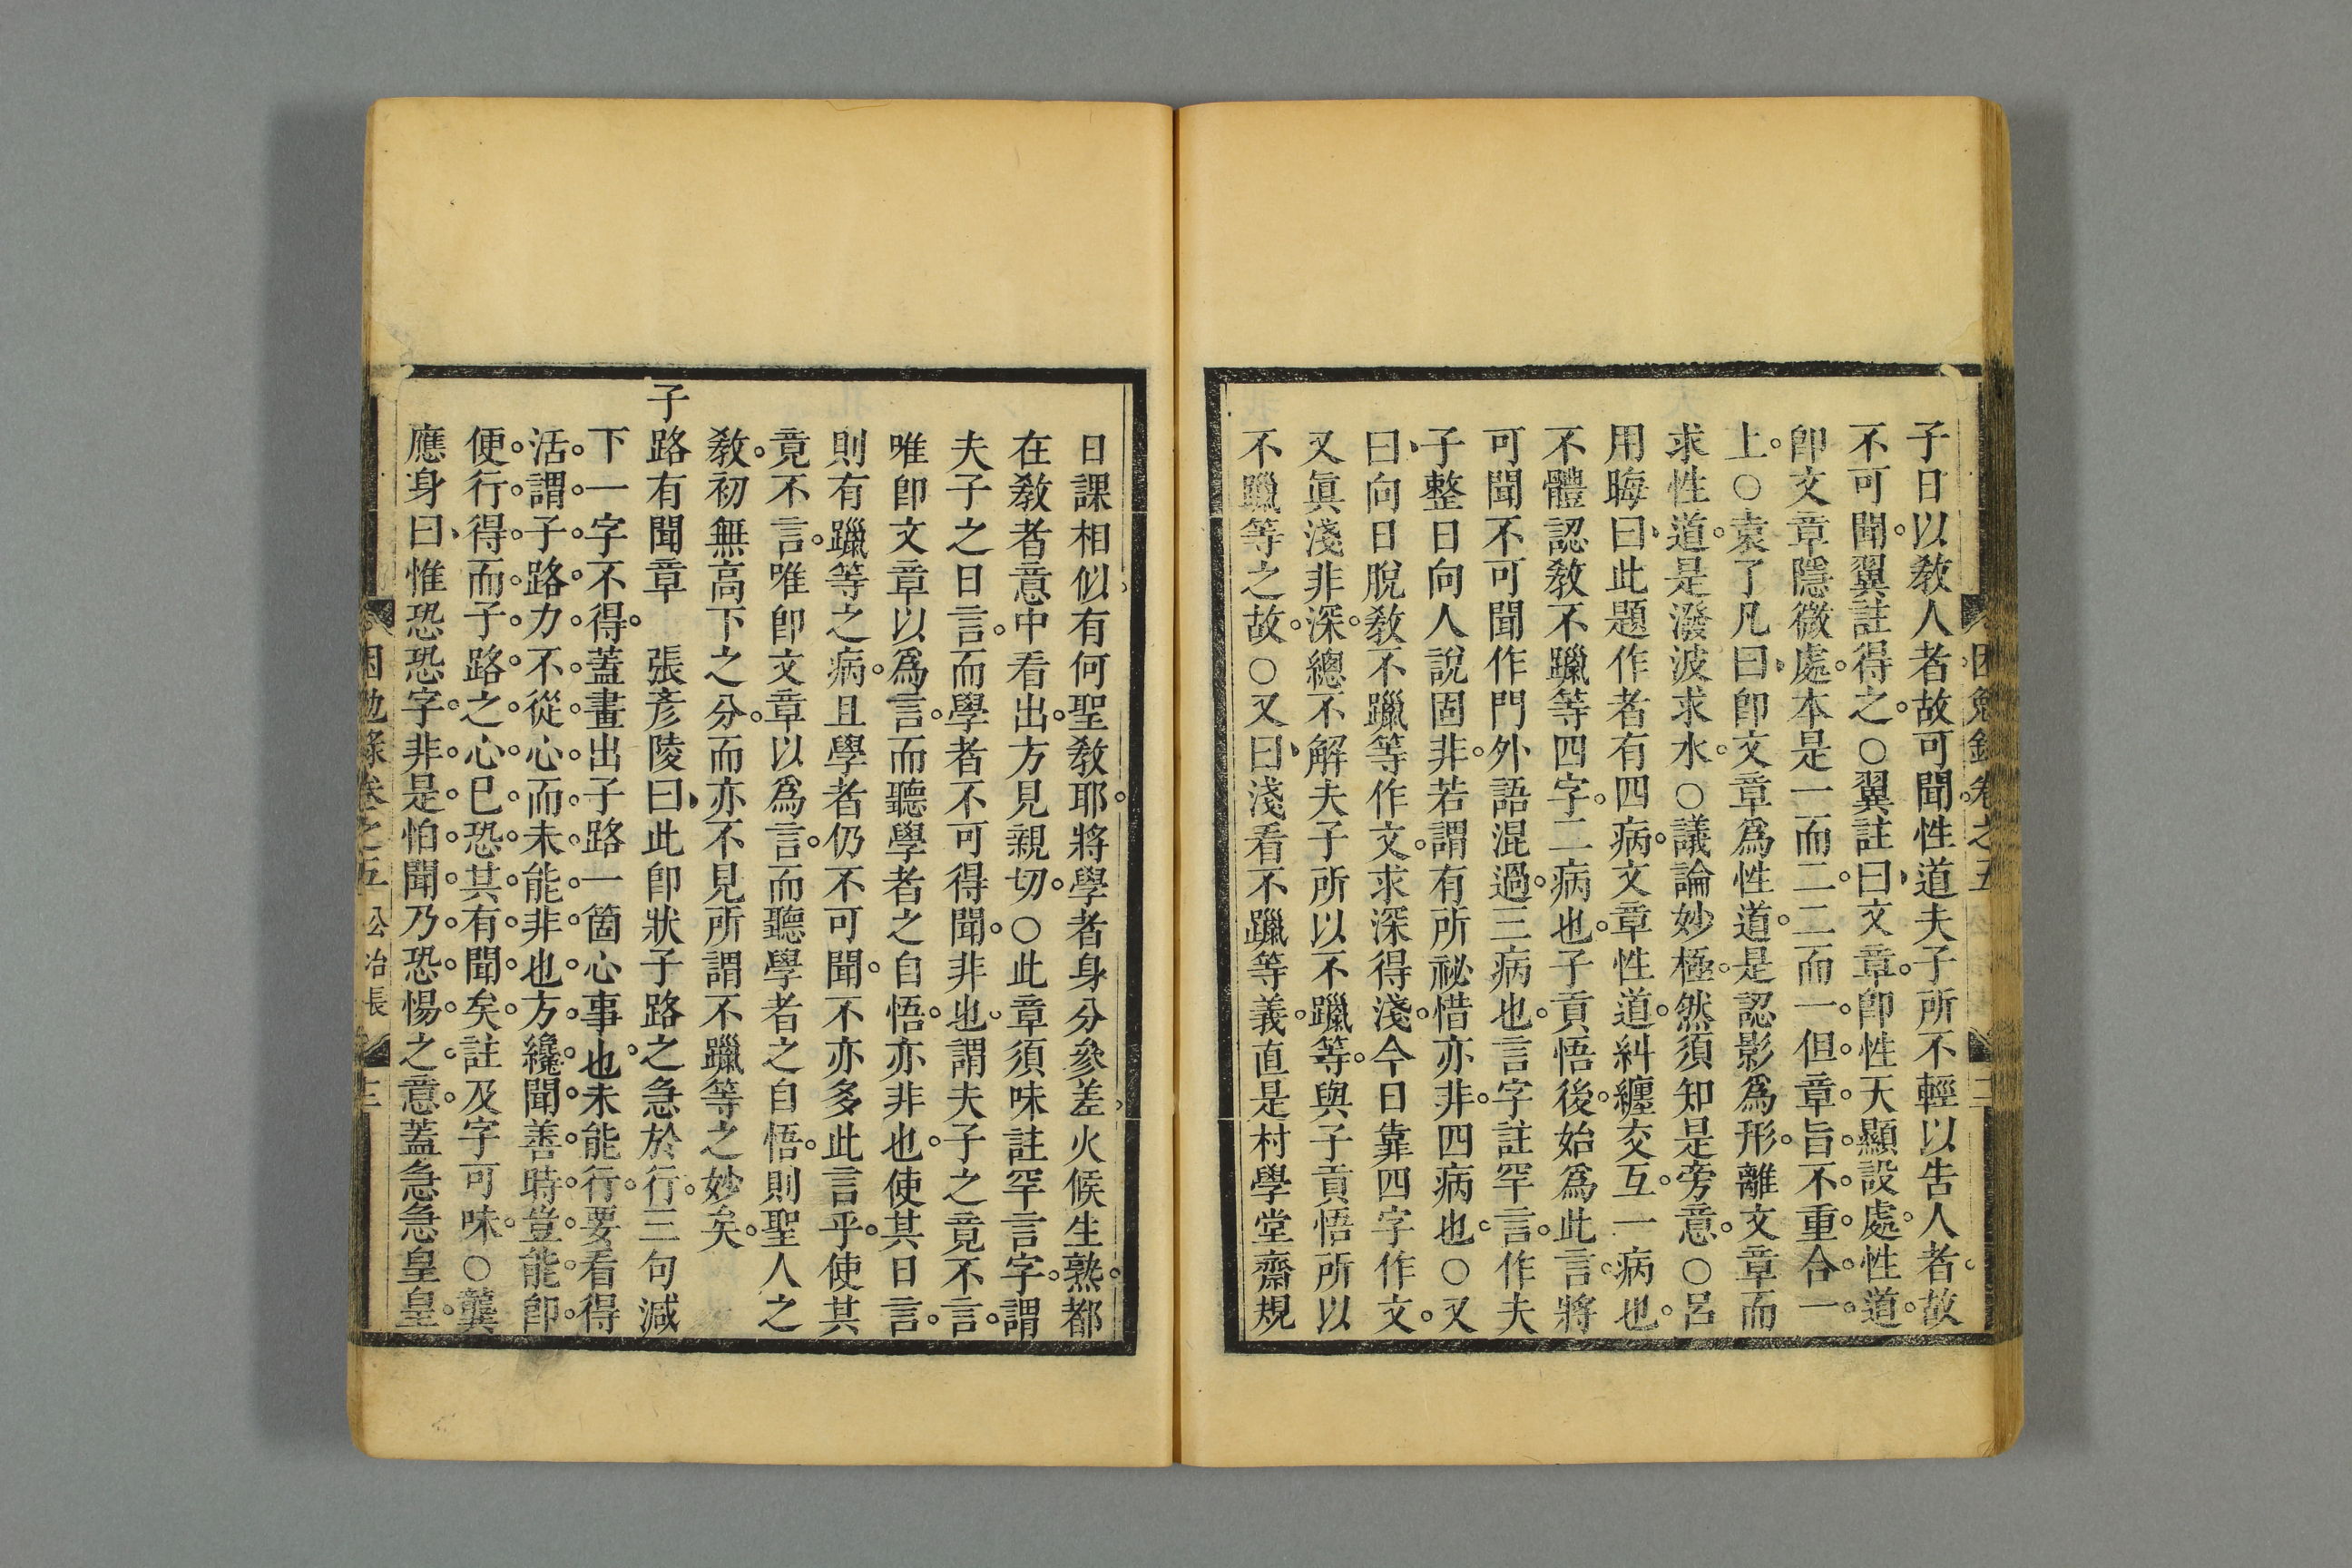 子日以敎人者故可聞性道夫子所不輕以告人者故
不可聞翼註得之○翼註曰文章卽性天顯設處性道
卽文章隱微處本是一而二二而一但章旨不重合一
上○袁了凡曰卽文章爲性道是認影爲形離文章而
求性道是潑波求水○議論妙極然須知是旁意○呂
用晦曰此題作者有四病文章性道糾纏交互一病也
不體認敎不躐等四字二病也子貢悟後始爲此言將
可聞不可聞作門外語混過三病也言字註罕言作夫
子整日向人說固非若謂有所祕惜亦非四病也○又
曰向日脫敎不躐等作文求深得淺今日靠四字作文
又眞淺非深總不解夫子所以不躐等與子貢悟所以
不躐等之故○又曰淺看不躐等義直是村學堂齋規
日課相似有何聖敎耶將學者身分參差火候生熟都
在敎者意中看出方見親切○此章須味註罕言字謂
夫子之日言而學者不可得聞非也謂夫子之竟不言
唯卽文章以爲言而聽學者之自悟亦非也使其日言
則有躐等之病且學者仍不可聞不亦多此言乎使其
竟不言唯卽文章以爲言而聽學者之自悟則聖人之
敎初無高下之分而亦不見所謂不躐等之妙矣
子路有聞章　張彥陵曰此卽狀子路之急於行三句減
下一字不得蓋畫出子路一箇心事也未能行要看得
活謂子路力不從心而未能非也方纔聞善時豈能卽
便行得而子路之心已恐其有聞矣註及字可味○龔
應身曰惟恐恐字非是怕聞乃恐惕之意蓋急急皇皇
困勉錄卷之五 公冶長